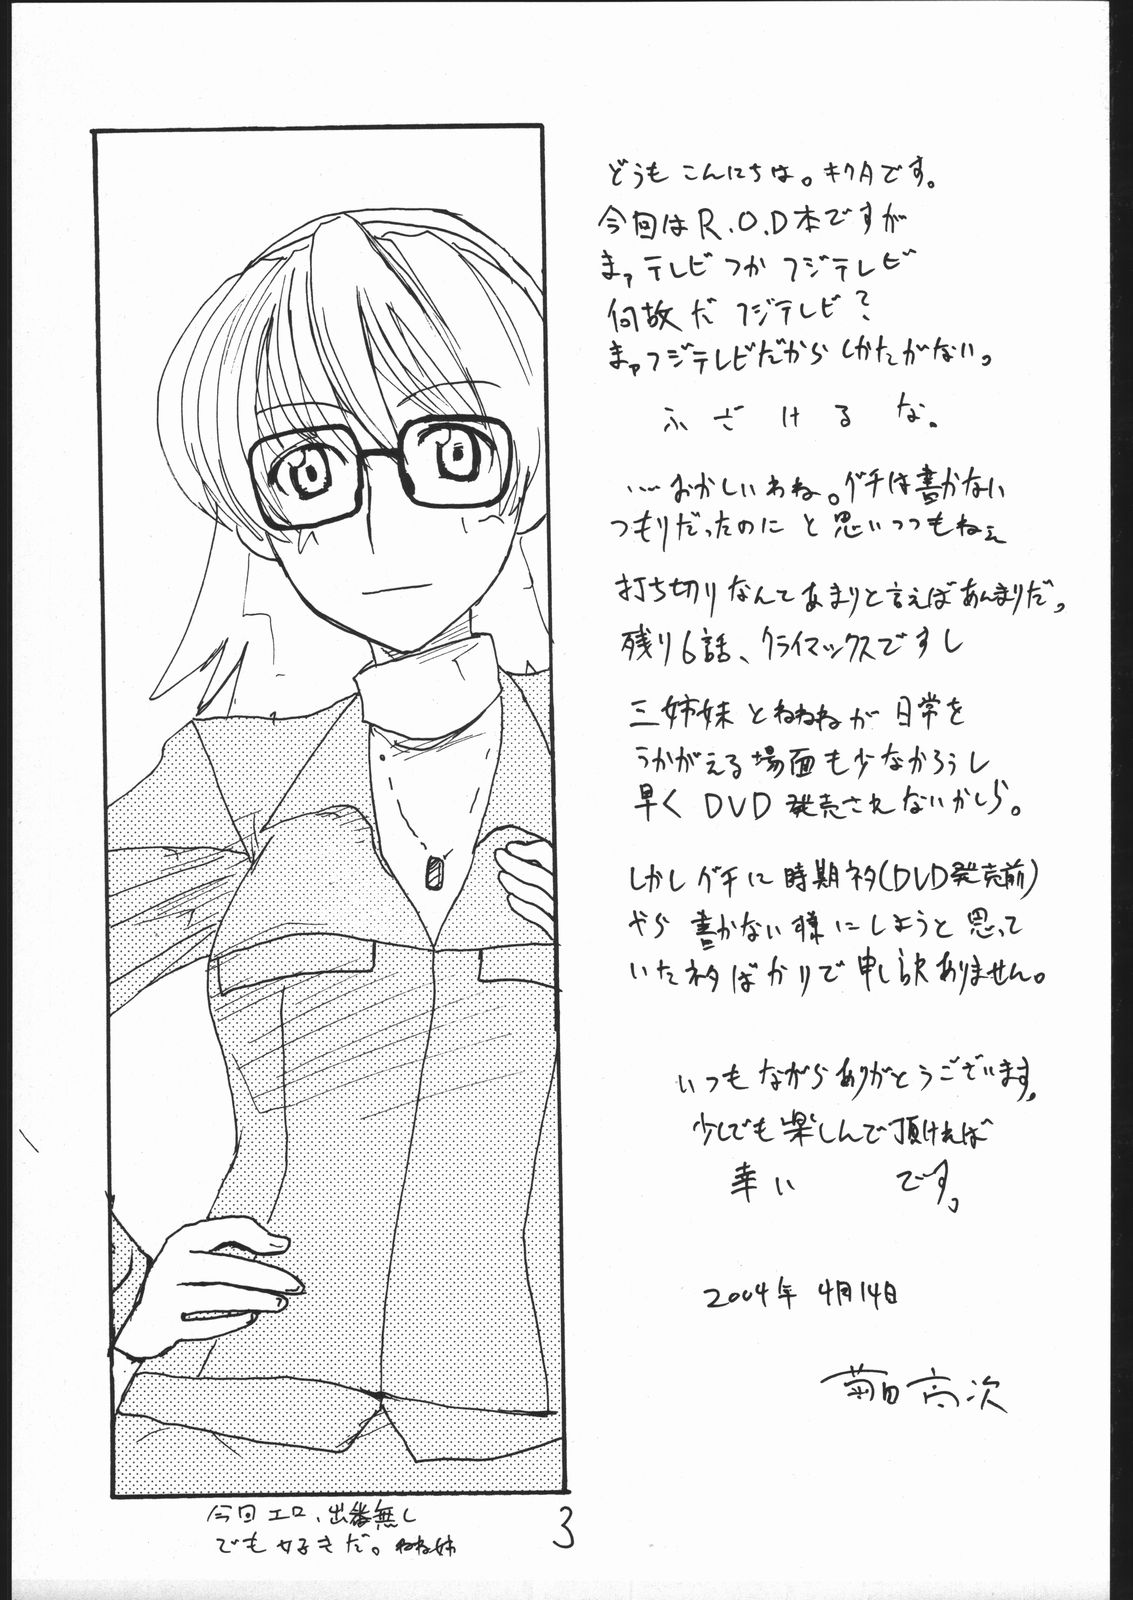 どうも こんにちは。キクタです。
今回は R.O.D本ですが
まァテレビ つか フジテレビ
何故だ フジテレビ?
まァフジテレビだから しかたがない。
ふざけるな。
……おかしいわね。グチは書かない
つもりだったのに と思いつつもねェ
打ち切りなんてあまりと言えばあんまりだ。
残り6話、クライマックスですし
三姉妹とねねねが日常を
うかがえる場面も少なかろうし
早く DVD 発売されないかしら。
しかしグチに時期ネタ(DVD発売前)
やら 書かない様にしようと思って
いたネタばかりで申し訳ありません。
いつもながらありがとうございます。
少しでも楽しんで頂ければ
幸い です。
2004年 4月14日
菊田高次
今回エロ、出番無し
でも好きだ。ねね姉
3